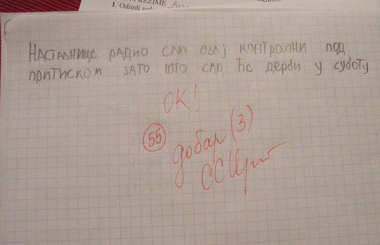 1. Odredi
Наставнице радио сам овај контролни под
притиском зато што сам ће дерби у суботу
ОК!
55
добар (3)